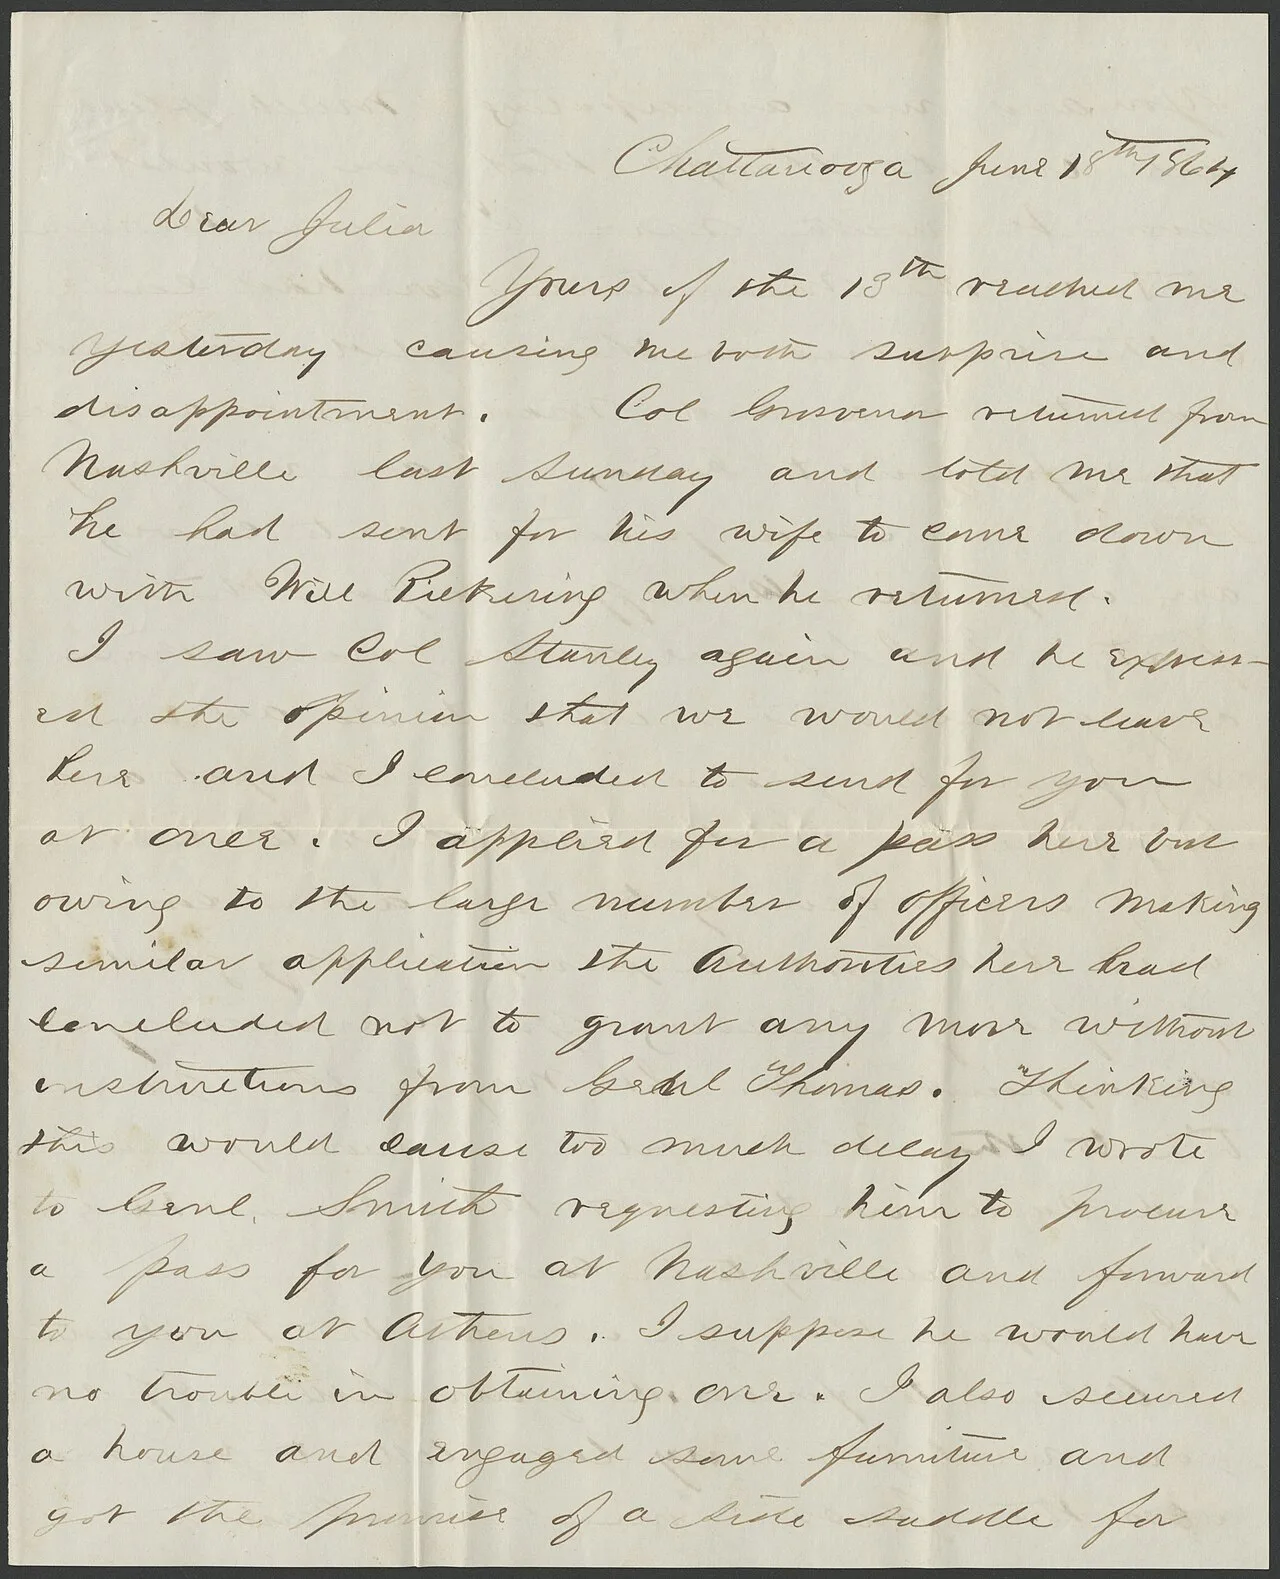 Chattanooga June 18th 1864
Dear Julia
Yours of the 13th reached me
yesterday causing me both surprise and
disappointment. Col Grosvenor returned from
Nashville last Sunday and told me that
he had sent for his wife to come down
with Will Pickering when he returned.
I saw Col Stanley again and he express-
ed the opinion that we would not leave
here and I concluded to send for you
at once. I applied for a pass here but
owing to the large number of officers making
similar application the Authorities here had
concluded not to grant any more without
instructions from Genl Thomas. Thinking
this would cause too much delay I wrote
to Genl. Smith requesting him to procure
a pass for you at Nashville and forward
to you at Athens. I suppose he would have
no trouble in obtaining one. I also secured
a house and engaged some furniture and
got the promise of a side saddle for